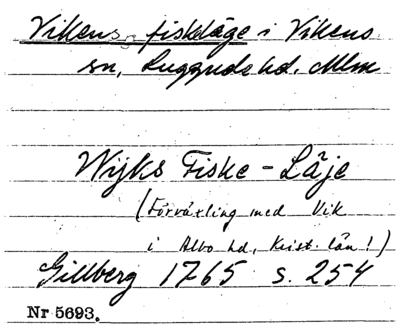 Vikens fiskeläge i Vikens
sn, Luggude hd. Mlm
Wijks Fiske-Läje
(Förväxling med Vik
i Albo hd, Krist. län!)
Gillberg 1765 s. 254
Nr 5693.